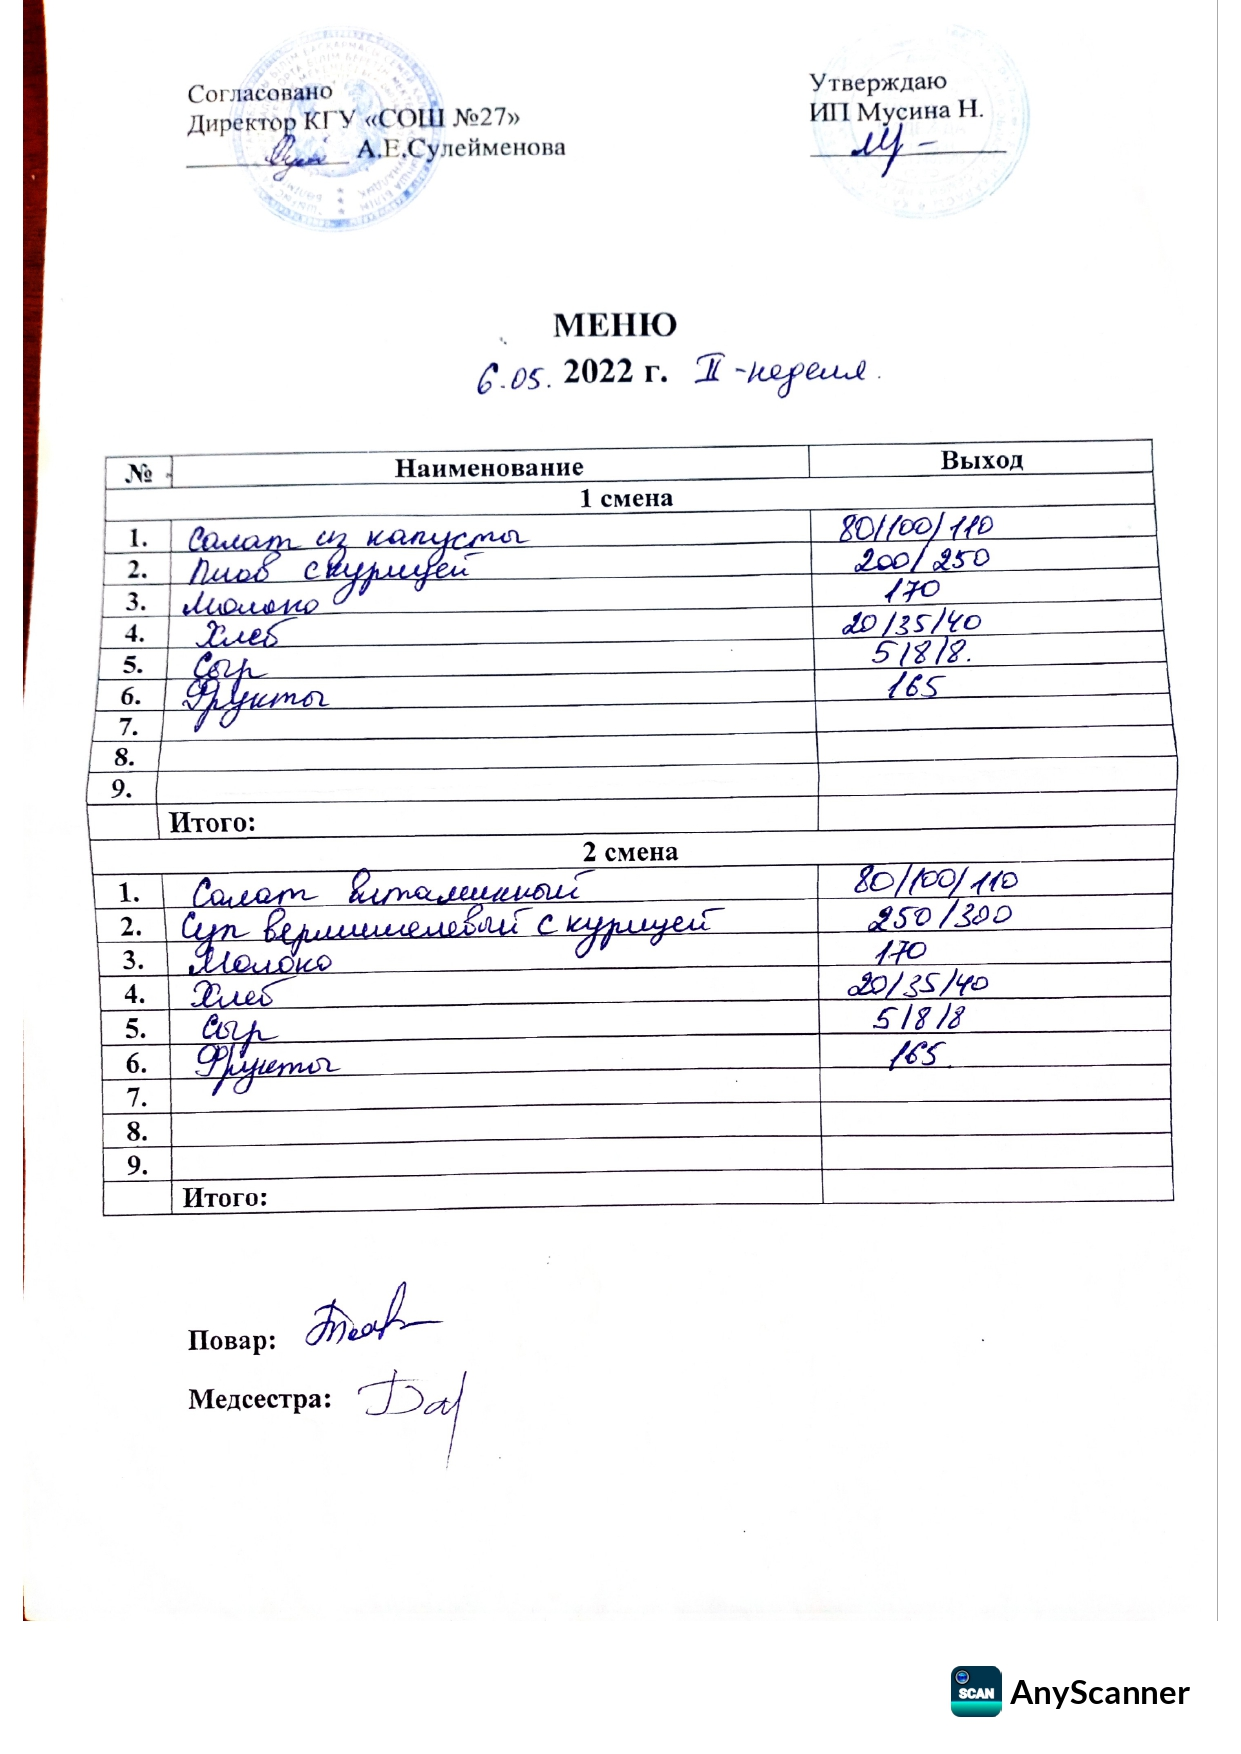 Согласовано
Директор КГУ «СОШ №27»
А.Е.Сулейменова
Утверждаю
ИП Мусина Н.
МЕНЮ
6.05. 2022 г. II -неделя.
№ Наименование Выход
1 смена
1. Салат из капусты 80/100/110
2. Плов с курицей 200/250
3. Молоко 170
4. Хлеб 20/35/40
5. Сыр 5/8/8.
6. Фрукты 165
7.
8.
9.
Итого:
2 смена
1. Салат витаминный 80/100/110
2. Суп вермишелевый с курицей 250/300
3. Молоко 170
4. Хлеб 20/35/40
5. Сыр 5/8/8
6. Фрукты 165
7.
8.
9.
Итого:
Повар:
Медсестра:
SCAN AnyScanner